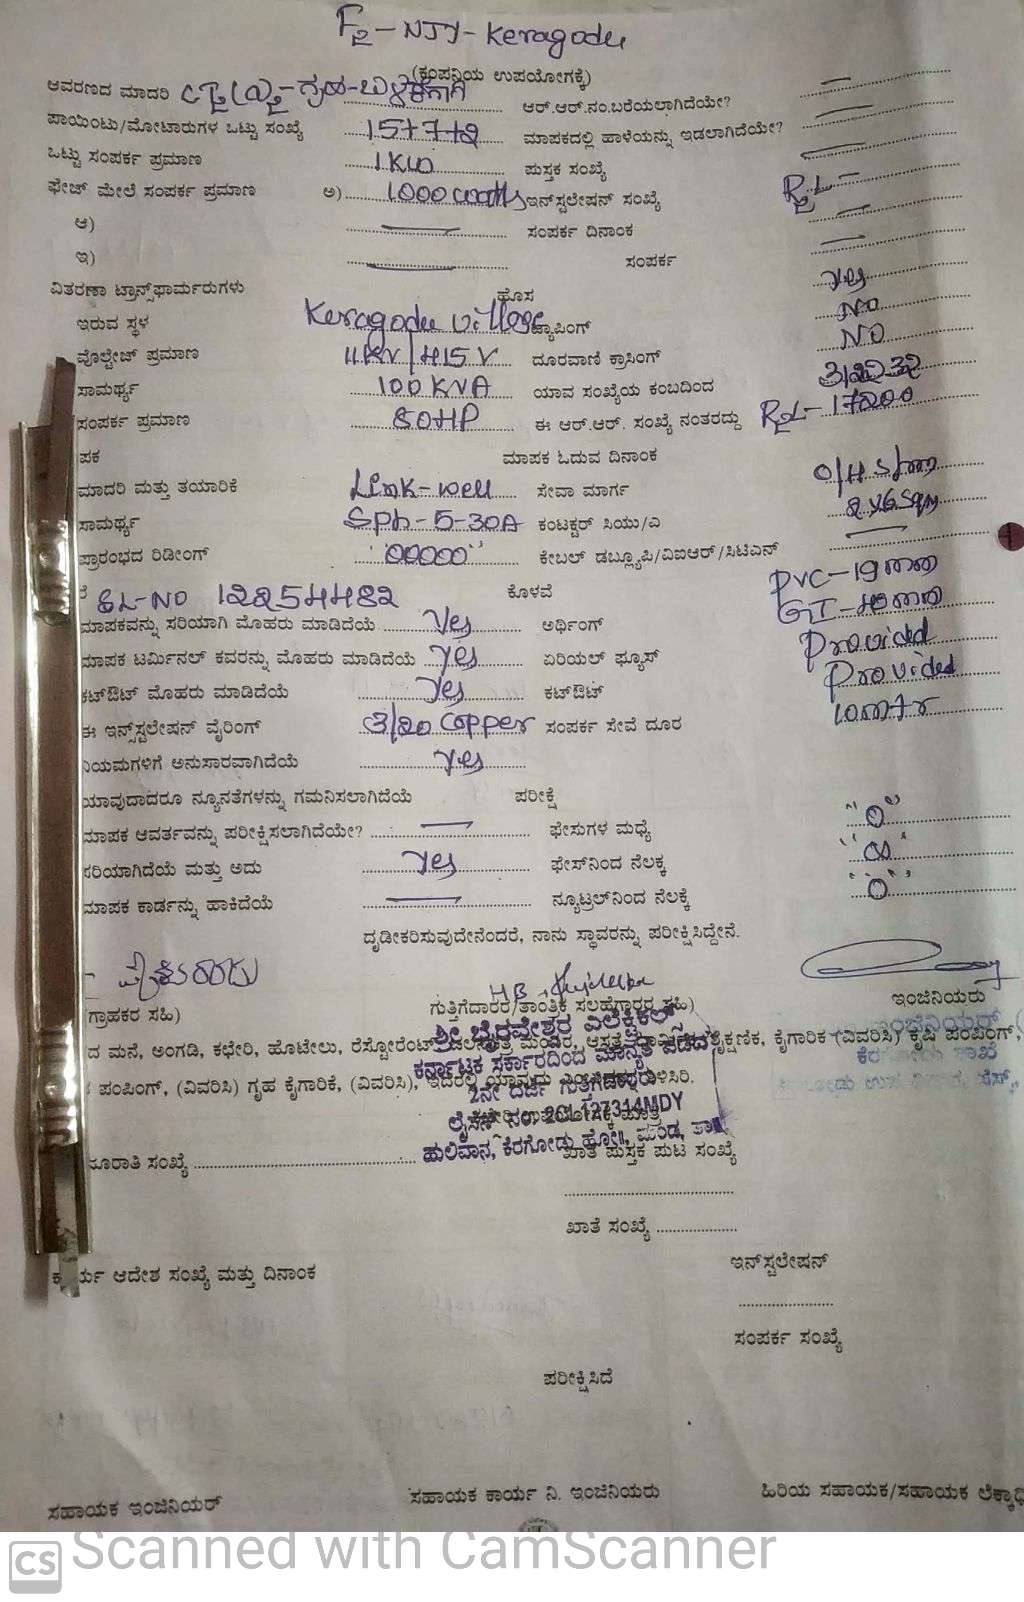 F2 - NJY - Keragodu
(ಕಂಪನಿಯ ಉಪಯೋಗಕ್ಕೆ)
ಆವರಣದ ಮಾದರಿ
ಆರ್.ಆರ್.ನಂ.ಬರೆಯಲಾಗಿದೆಯೇ?
ಪಾಯಿಂಟು/ಮೋಟಾರುಗಳ ಒಟ್ಟು ಸಂಖ್ಯೆ 15+7+2 ಮಾಪಕದಲ್ಲಿ ಹಾಳೆಯನ್ನು ಇಡಲಾಗಿದೆಯೇ?
ಒಟ್ಟು ಸಂಪರ್ಕ ಪ್ರಮಾಣ 1KW ಪುಸ್ತಕ ಸಂಖ್ಯೆ
ಫೇಜ್ ಮೇಲೆ ಸಂಪರ್ಕ ಪ್ರಮಾಣ ಅ) 1000 watts ಇನ್‌ಸ್ಟಲೇಷನ್ ಸಂಖ್ಯೆ R2L -
ಆ) ಸಂಪರ್ಕ ದಿನಾಂಕ
ಇ) ಸಂಪರ್ಕ
ವಿತರಣಾ ಟ್ರಾನ್ಸ್‌ಫಾರ್ಮರುಗಳು ಹೊಸ Yes
ಇರುವ ಸ್ಥಳ Keragodu village ಟ್ಯಾಪಿಂಗ್ NO
ವೊಲ್ಟೇಜ್ ಪ್ರಮಾಣ 11KV/415V ದೂರವಾಣಿ ಕ್ರಾಸಿಂಗ್ NO
ಸಾಮರ್ಥ್ಯ 100 KVA ಯಾವ ಸಂಖ್ಯೆಯ ಕಂಬದಿಂದ
ಸಂಪರ್ಕ ಪ್ರಮಾಣ 80HP ಈ ಆರ್.ಆರ್. ಸಂಖ್ಯೆ ನಂತರದ್ದು R2L- 17200
ಪಕ ಮಾಪಕ ಓದುವ ದಿನಾಂಕ
ಮಾದರಿ ಮತ್ತು ತಯಾರಿಕೆ Link-well ಸೇವಾ ಮಾರ್ಗ
ಸಾಮರ್ಥ್ಯ Sph-5-30A ಕಂಟಕ್ಟರ್ ಸಿಯು/ಎ 2x6Sqm
ಪ್ರಾರಂಭದ ರಿಡೀಂಗ್ "00000" ಕೇಬಲ್ ಡಬ್ಲ್ಯೂಪಿ/ವಿಐಆರ್/ಸಿಟಿಎನ್
SL-NO 12254482 ಕೊಳವೆ PVC-19mm
ಮಾಪಕವನ್ನು ಸರಿಯಾಗಿ ಮೊಹರು ಮಾಡಿದೆಯೆ Yes ಅರ್ಥಿಂಗ್ GI-40mm
ಮಾಪಕ ಟರ್ಮಿನಲ್ ಕವರನ್ನು ಮೊಹರು ಮಾಡಿದೆಯೆ Yes ಏರಿಯಲ್ ಫ್ಯೂಸ್ Provided
ಕಟ್‌ಔಟ್ ಮೊಹರು ಮಾಡಿದೆಯೆ Yes ಕಟ್‌ಔಟ್ Provided
ಈ ಇನ್ಸ್‌ಸ್ಟಲೇಷನ್ ವೈರಿಂಗ್ 3/20 Copper ಸಂಪರ್ಕ ಸೇವೆ ದೂರ 10mtr
ನಿಯಮಗಳಿಗೆ ಅನುಸಾರವಾಗಿದೆಯೆ Yes
ಯಾವುದಾದರೂ ನ್ಯೂನತೆಗಳನ್ನು ಗಮನಿಸಲಾಗಿದೆಯೆ ಪರೀಕ್ಷೆ
ಮಾಪಕ ಆವರ್ತವನ್ನು ಪರೀಕ್ಷಿಸಲಾಗಿದೆಯೇ? ಫೇಸುಗಳ ಮಧ್ಯೆ "0"
ಸರಿಯಾಗಿದೆಯೆ ಮತ್ತು ಅದು Yes ಫೇಸ್‌ನಿಂದ ನೆಲಕ್ಕೆ
ಮಾಪಕ ಕಾರ್ಡನ್ನು ಹಾಕಿದೆಯೆ ನ್ಯೂಟ್ರಲ್‌ನಿಂದ ನೆಲಕ್ಕೆ "0"
ದೃಡೀಕರಿಸುವುದೇನೆಂದರೆ, ನಾನು ಸ್ಥಾವರನ್ನು ಪರೀಕ್ಷಿಸಿದ್ದೇನೆ.
ಗ್ರಾಹಕರ ಸಹಿ) ಗುತ್ತಿಗೆದಾರರ/ತಾಂತ್ರಿಕ ಸಲಹೆಗ್ಗಾರರ ಸಹಿ) ಇಂಜಿನಿಯರು
ಶ್ರೀ ಭೈರವೇಶ್ವರ ಎಲೆಕ್ಟ್ರಿಕಲ್ಸ್
ದ ಮನೆ, ಅಂಗಡಿ, ಕಛೇರಿ, ಹೊಟೇಲು, ರೆಸ್ಟೋರೆಂಟ್, ಶೈಕ್ಷಣಿಕ, ಕೈಗಾರಿಕ (ವಿವರಿಸಿ) ಕೃಷಿ ಪಂಪಿಂಗ್,
ಕರ್ನಾಟಕ ಸರ್ಕಾರದಿಂದ ಮಾನ್ಯತೆ ಪಡೆದ
ಪಂಪಿಂಗ್, (ವಿವರಿಸಿ) ಗೃಹ ಕೈಗಾರಿಕೆ, (ವಿವರಿಸಿ),
2ನೇ ದರ್ಜೆ ಗುತ್ತಿಗೆದಾರರು
ಲೈಸೆನ್ಸ್ ನಂ. 2CL127314MDY
ಹುಲಿವಾನ, ಕೆರಗೋಡು ಹೋ॥, ಮಂಡ್ಯ ತಾ॥
ಜೂರಾತಿ ಸಂಖ್ಯೆ ಖಾತೆ ಪುಸ್ತಕ ಪುಟ ಸಂಖ್ಯೆ
ಖಾತೆ ಸಂಖ್ಯೆ
ಇನ್‌ಸ್ಟಲೇಷನ್
ಕಾರ್ಯ ಆದೇಶ ಸಂಖ್ಯೆ ಮತ್ತು ದಿನಾಂಕ
ಸಂಪರ್ಕ ಸಂಖ್ಯೆ
ಪರೀಕ್ಷಿಸಿದೆ
ಸಹಾಯಕ ಇಂಜಿನಿಯರ್ ಸಹಾಯಕ ಕಾರ್ಯ ನಿ. ಇಂಜಿನಿಯರು ಹಿರಿಯ ಸಹಾಯಕ/ಸಹಾಯಕ ಲೆಕ್ಕಾಧಿ
CS Scanned with CamScanner